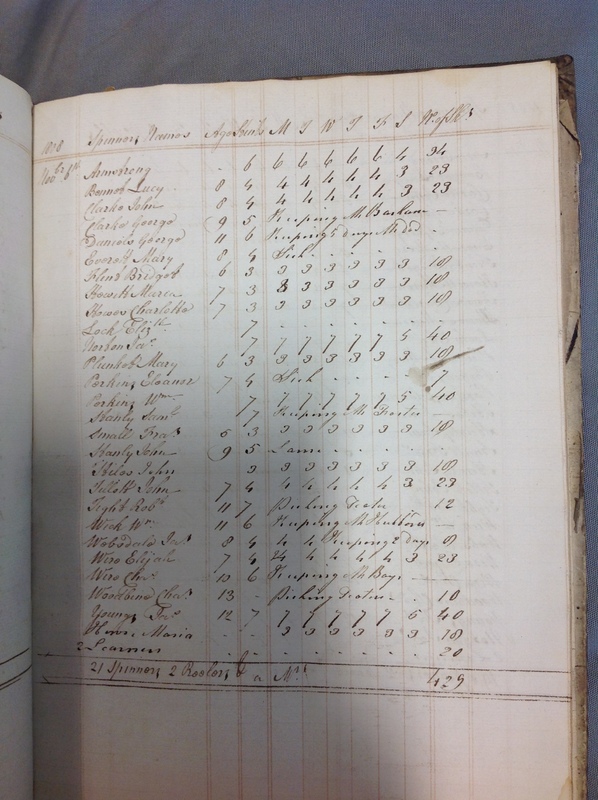 1808 Spinners Names Age Stints M T W T F S No. of Sks
Novbr 8th Armstrong - 6 6 6 6 6 6 4 34
Bennet Lucy 8 4 4 4 4 4 4 3 23
Clarke John 8 4 4 4 4 4 4 3 23
Clarke George 9 5 Keeping Mr —
Daniels George 11 6 Keeping 5 days Mr -
Everet Mary 8 4 Sick - - - - -
Flint Bridget 6 3 3 3 3 3 3 3 18
Howith Maria 7 3 3 3 3 3 3 3 18
Howes Charlotte 7 3 3 3 3 3 3 3 18
Lock Elizth 7 - - - - - -
Norton Jas 7 7 7 7 7 7 5 40
Plunket Mary 6 3 3 3 3 3 3 3 18
Perkins Eleanor 7 4 Sick - - - 7
Perkins Wm 7 7 7 7 7 7 5 40
Stanly Saml 7 Keeping Mr —
Small Fras 6 3 3 3 3 3 3 3 18
Stanly John 9 5 Lame - - - - -
John 3 3 3 3 3 3 3 18
John 7 4 4 4 4 4 4 3 23
Tight Robt 11 7 Picking 12
Wm 11 6 Keeping Mr —
Jas 8 4 4 4 Keeping 2 days 8
Elijah 7 4 4 4 4 4 4 3 23
Chas 10 6 Keeping Mr Boys — —
Woodbine Chas 13 - Picking - 10
Youngs Fras 12 7 7 7 7 7 7 5 40
Maria - - 3 3 3 3 3 3 18
2 Learners - - - - - - 20
21 Spinners 2 Reelers & a 429